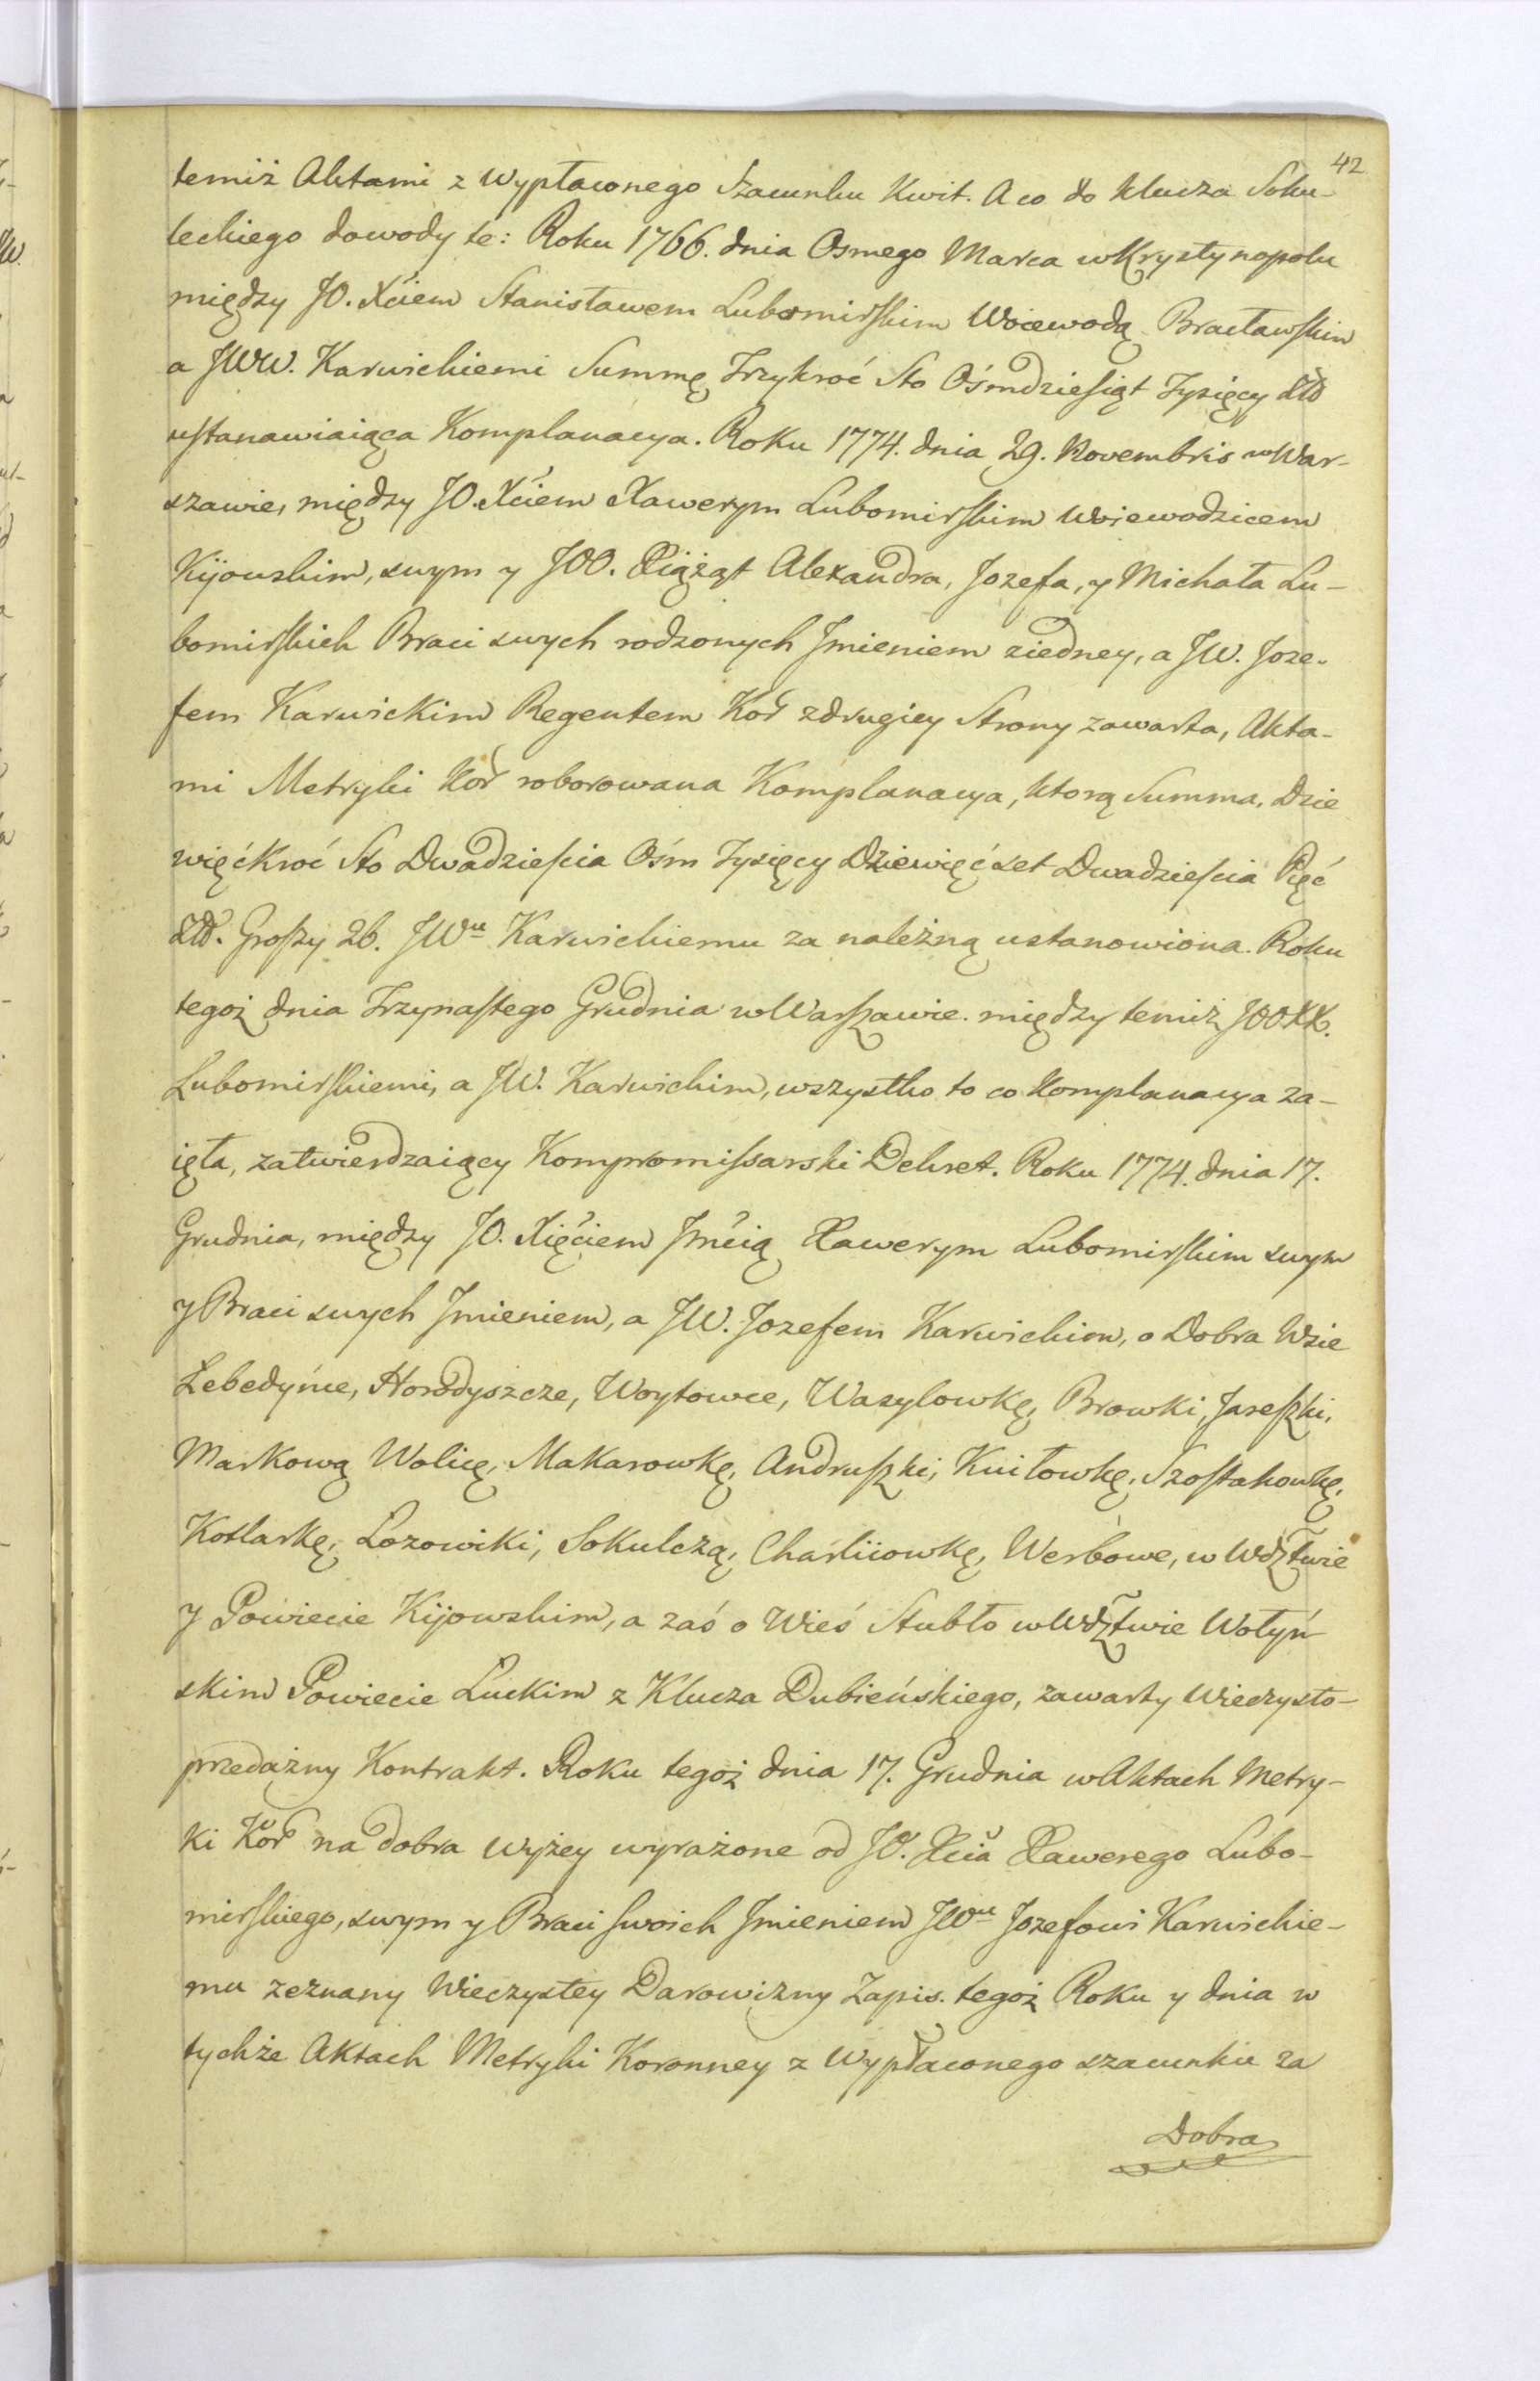 42
temiż Aktami z Wypłaconego Szacunku Kwit. A co do Klucza Soku-
leckiego dowody te: Roku 1766. dnia Osmego Marca w Krystynopolu
między JO. Xćiem Stanisławem Lubomirskim Woiewodą Bracławskim
a JWW. Karwickiemi Summę Trzykroć Sto Ośmdziesiąt Tysięcy Złł
ustanawiaiąca Komplanacya. Roku 1774. dnia 29. Novembris w War-
szawie, między JO. Xćiem Xawerym Lubomirskim Woiewodzicem
Kijowskim, swym y JOO. Xiążąt Alexandra, Jozefa, y Michała Lu-
bomirskich Braci swych rodzonych Jmieniem ziedney, a JW. Joze-
fem Karwickim Regentem Kor zdrugiey Strony zawarta, Akta-
mi Metryki Kor roborowana Komplanacya, ktorą Summa, Dzie
więćkroć Sto Dwadzieścia Ośm Tysięcy Dziewięćset Dwadzieścia Pięć
Złł. Groszy 26. JWu Karwickiemu za należną ustanowiona. Roku
tegoż dnia Trzynastego Grudnia w Warszawie. między temiż JOOXX.
Lubomirskiemi, a JW. Karwickim, wszystko to co Komplanacya za-
ięta, zatwierdzaiący Kompromissarski Dekret. Roku 1774. dnia 17.
Grudnia, między JO. Xięciem Jmćią Xawerym Lubomirskim swym
y Braci swych Jmieniem, a JW. Jozefem Karwickim, o Dobra Wsie
Lebedyńce, Horodyszcze, Woytowce, Wasylowkę, Browki, Jareszki,
Markową Wolicę, Makarowkę, Andruszki, Kniłowkę, Szostakowkę,
Kotlarkę, Lozowiki, Sokulczą, Charliiowkę, Werbowe, w Wdztwie
y Powiecie Kijowskim, a zaś o Wieś Stubło w Wdztwie Wołyń
skim Powiecie Luckim z Klucza Dubieńskiego, zawarty Wieczysto-
przedażny Kontrakt. Roku tegoż dnia 17. Grudnia w Aktach Metry-
ki Kor na dobra wyżey wyrażone od JO. Xcia Xawerego Lubo-
mirskiego, swym y Braci swoich Jmieniem JWu Jozefowi Karwickie-
mu zeznany Wieczystey Darowizny Zapis. tegoż Roku y dnia w
tychże Aktach Metryki Koronney z Wypłaconego szacunku za
Dobra